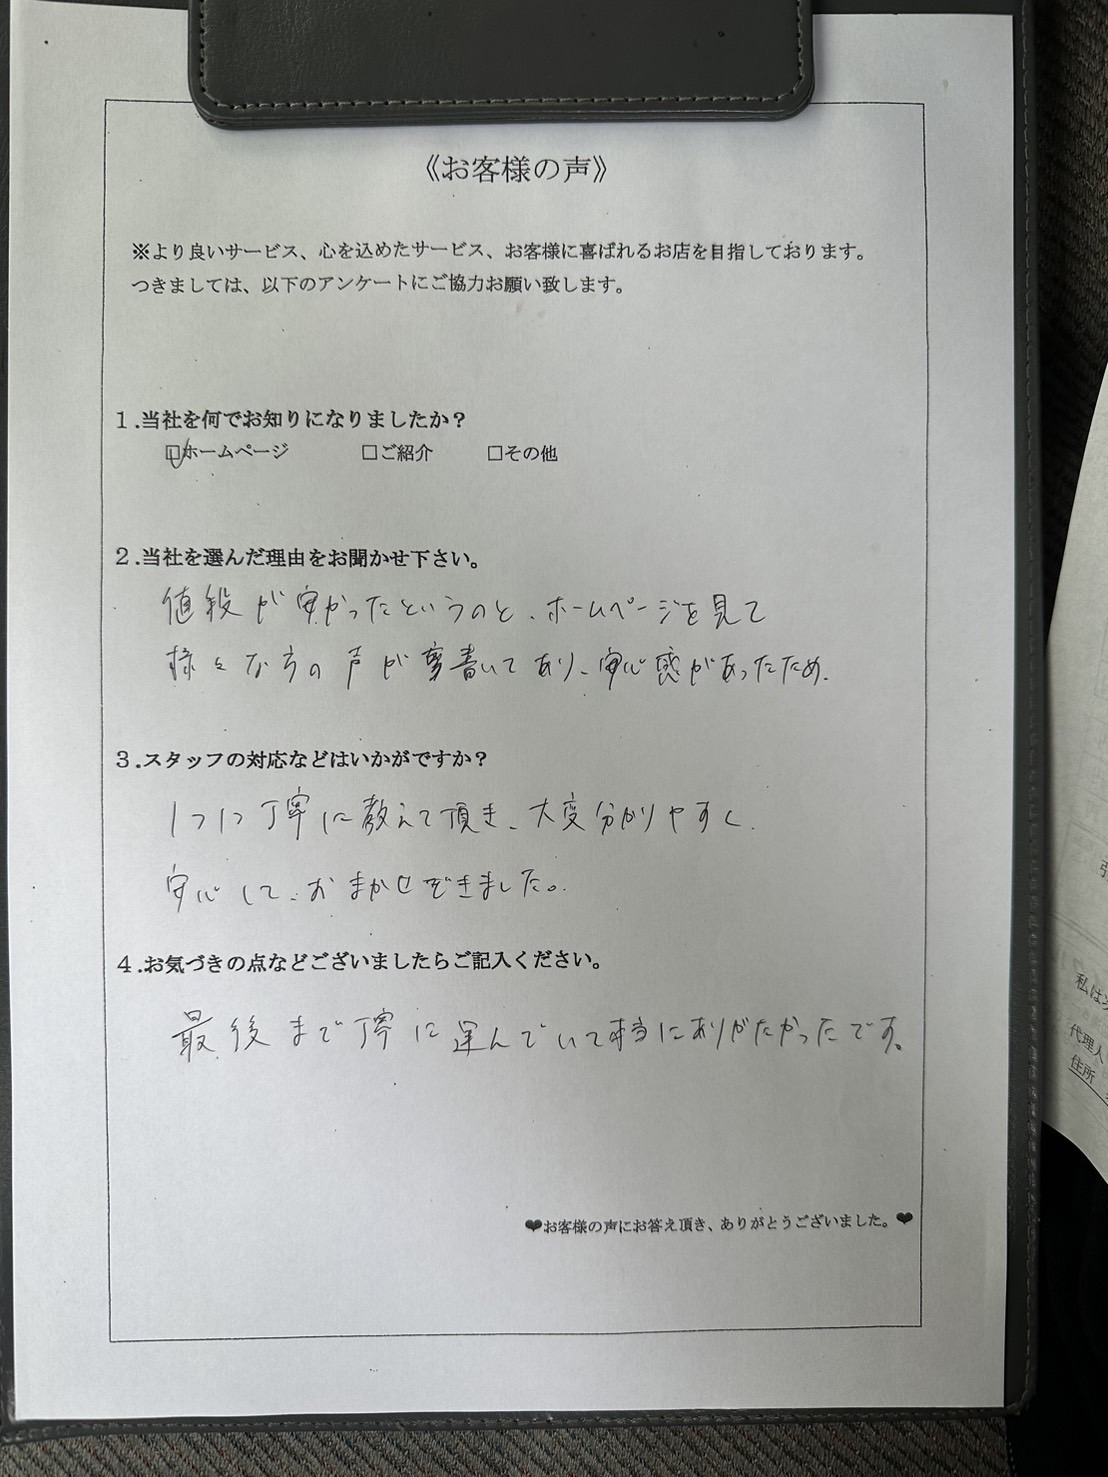 《お客様の声》
※より良いサービス、心を込めたサービス、お客様に喜ばれるお店を目指しております。
つきましては、以下のアンケートにご協力お願い致します。
1.当社を何でお知りになりましたか?
☑ホームページ □ご紹介 □その他
2.当社を選んだ理由をお聞かせ下さい。
値段が安かったというのと、ホームページを見て
様々な方の声が書いてあり、安心感があったため。
3.スタッフの対応などはいかがですか?
1つ1つ丁寧に教えて頂き、大変分かりやすく
安心して、おまかせできました。
4.お気づきの点などございましたらご記入ください。
最後まで丁寧に運んでいて本当にありがたかったです。
❤お客様の声にお答え頂き、ありがとうございました。❤
私は
代理人
住所